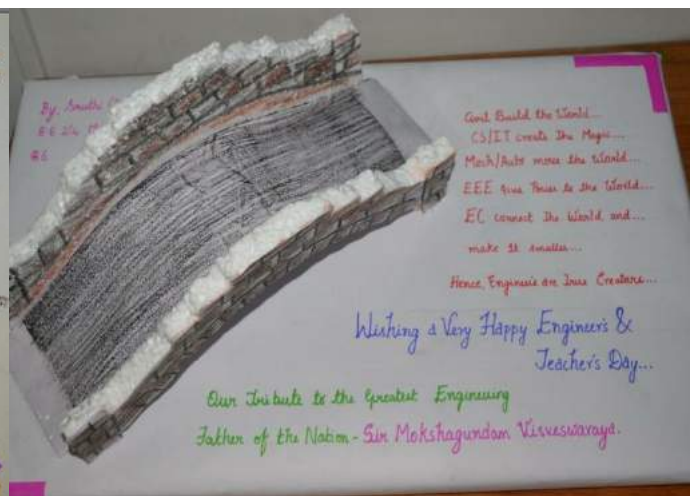 By, Smithi
Civil Build the World...
CS/IT creats the Magic...
Mech/Auto move the World...
EEE give Power to the World...
EC connect the World and...
make it smaller...
Hence, Engineer's are True Creators...
Wishing a Very Happy Engineer's &
Teacher's Day...
Our Tribute to the Greatest Engineering
Father of the Nation - Sir Mokshagundam Visveswaraya.